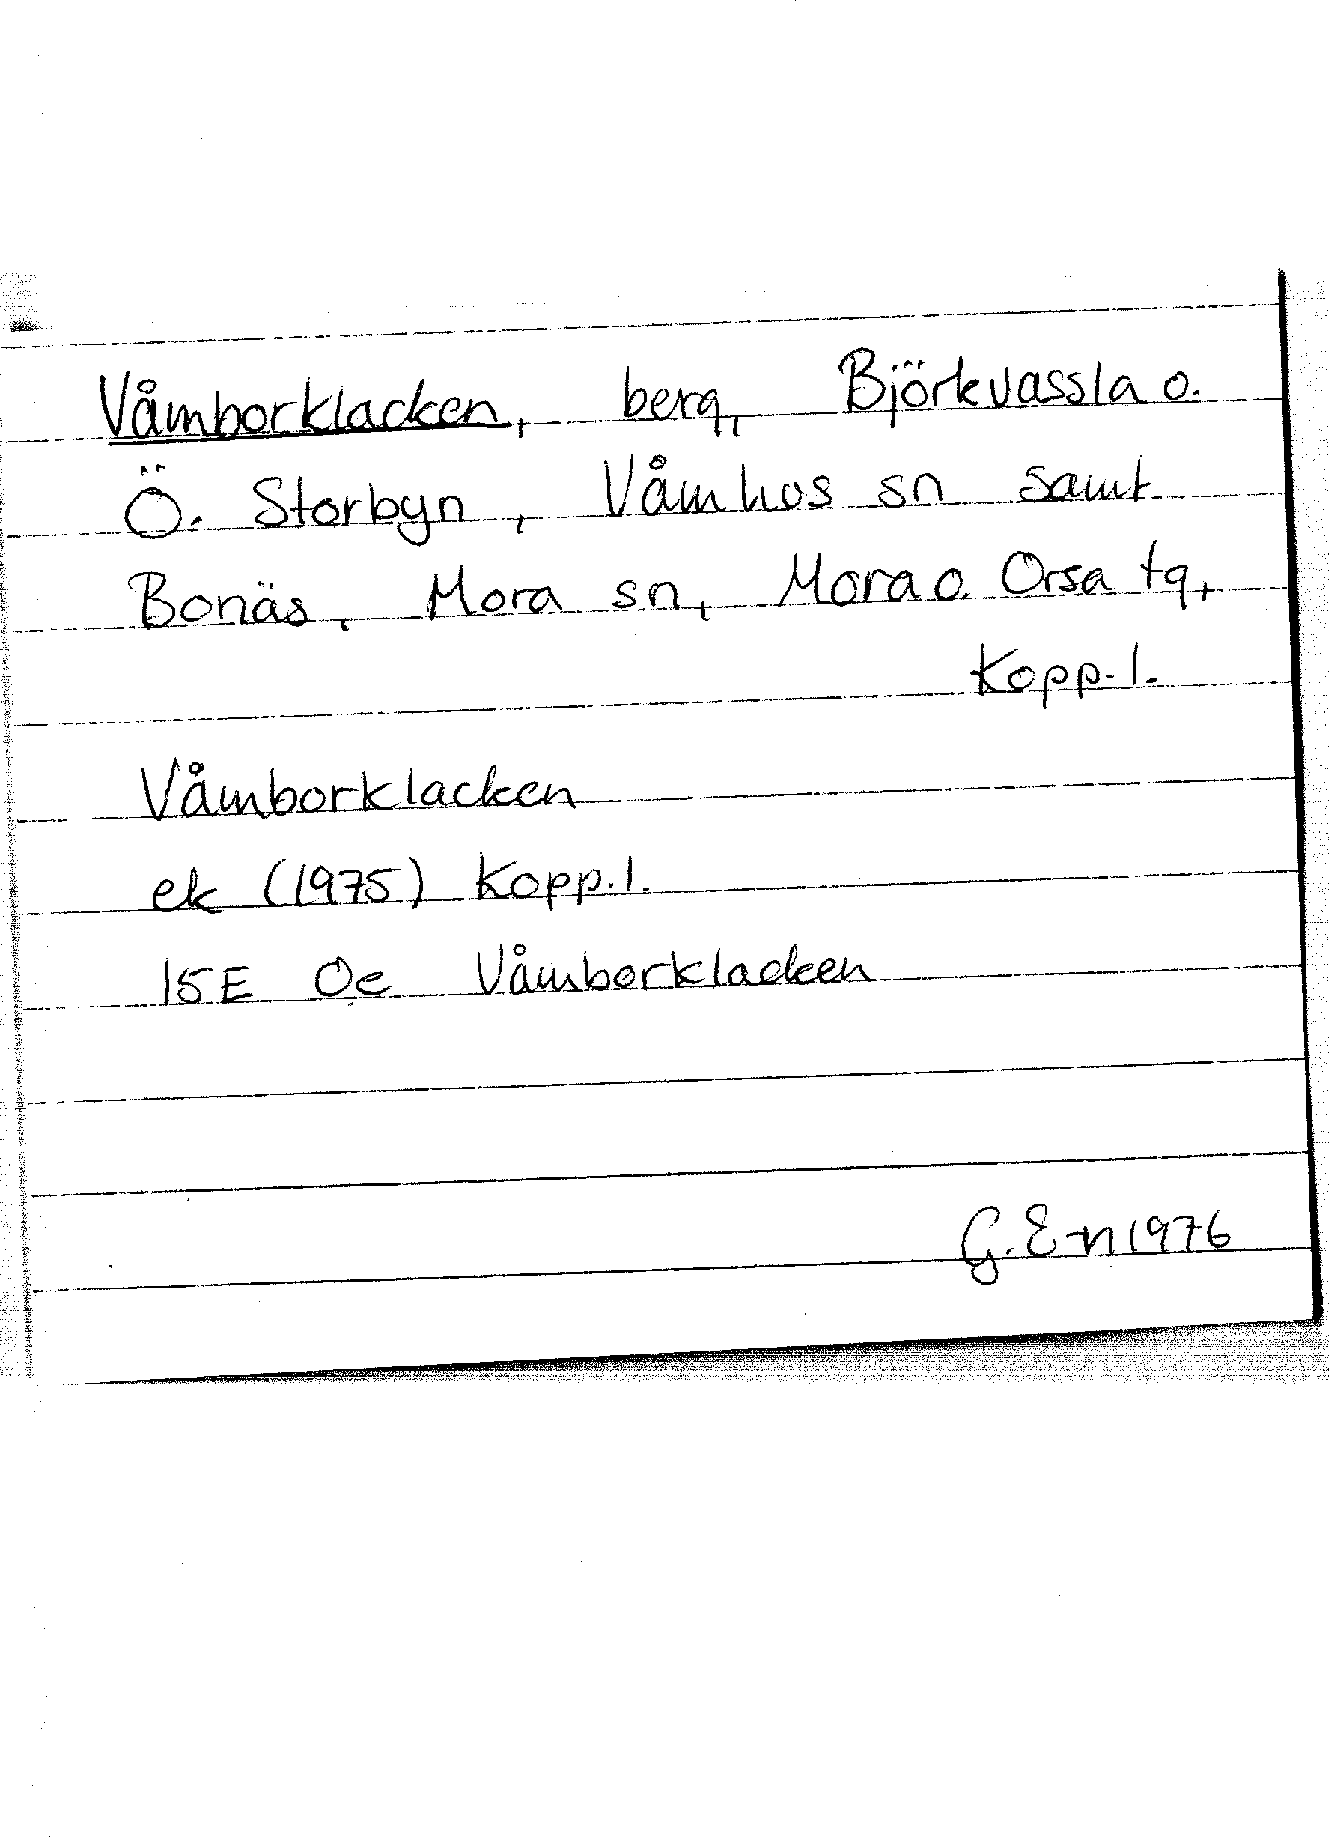 Våmborklacken, berg, Björkvassla o.
Ö. Storbyn, Våmhus sn samt
Bonäs, Mora sn, Mora o. Orsa tg,
Kopp. l.
Våmborklacken
ek (1975) Kopp. l.
15E 0e Våmborklacken
G. E-n 1976